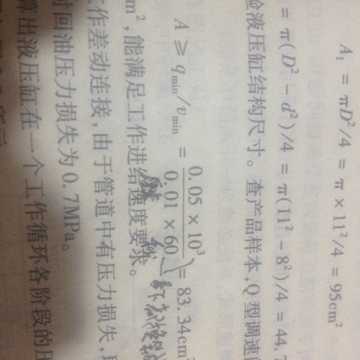 A₁ = πD²/4 = π × 11²/4 = 95cm²
= π(D² − d²)/4 = π(11² − 8²)/4 = 44.
验液压缸结构尺寸。查产品样本,Q型调速
A ≥ q_min/v_min = 0.05 × 10³ / 0.01 × 60 = 83.34cm²
m²,能满足工作进给速度要求。
作差动连接,由于管道中有压力损失,
时回油压力损失为0.7MPa。
算出液压缸在一个工作循环各阶段的压